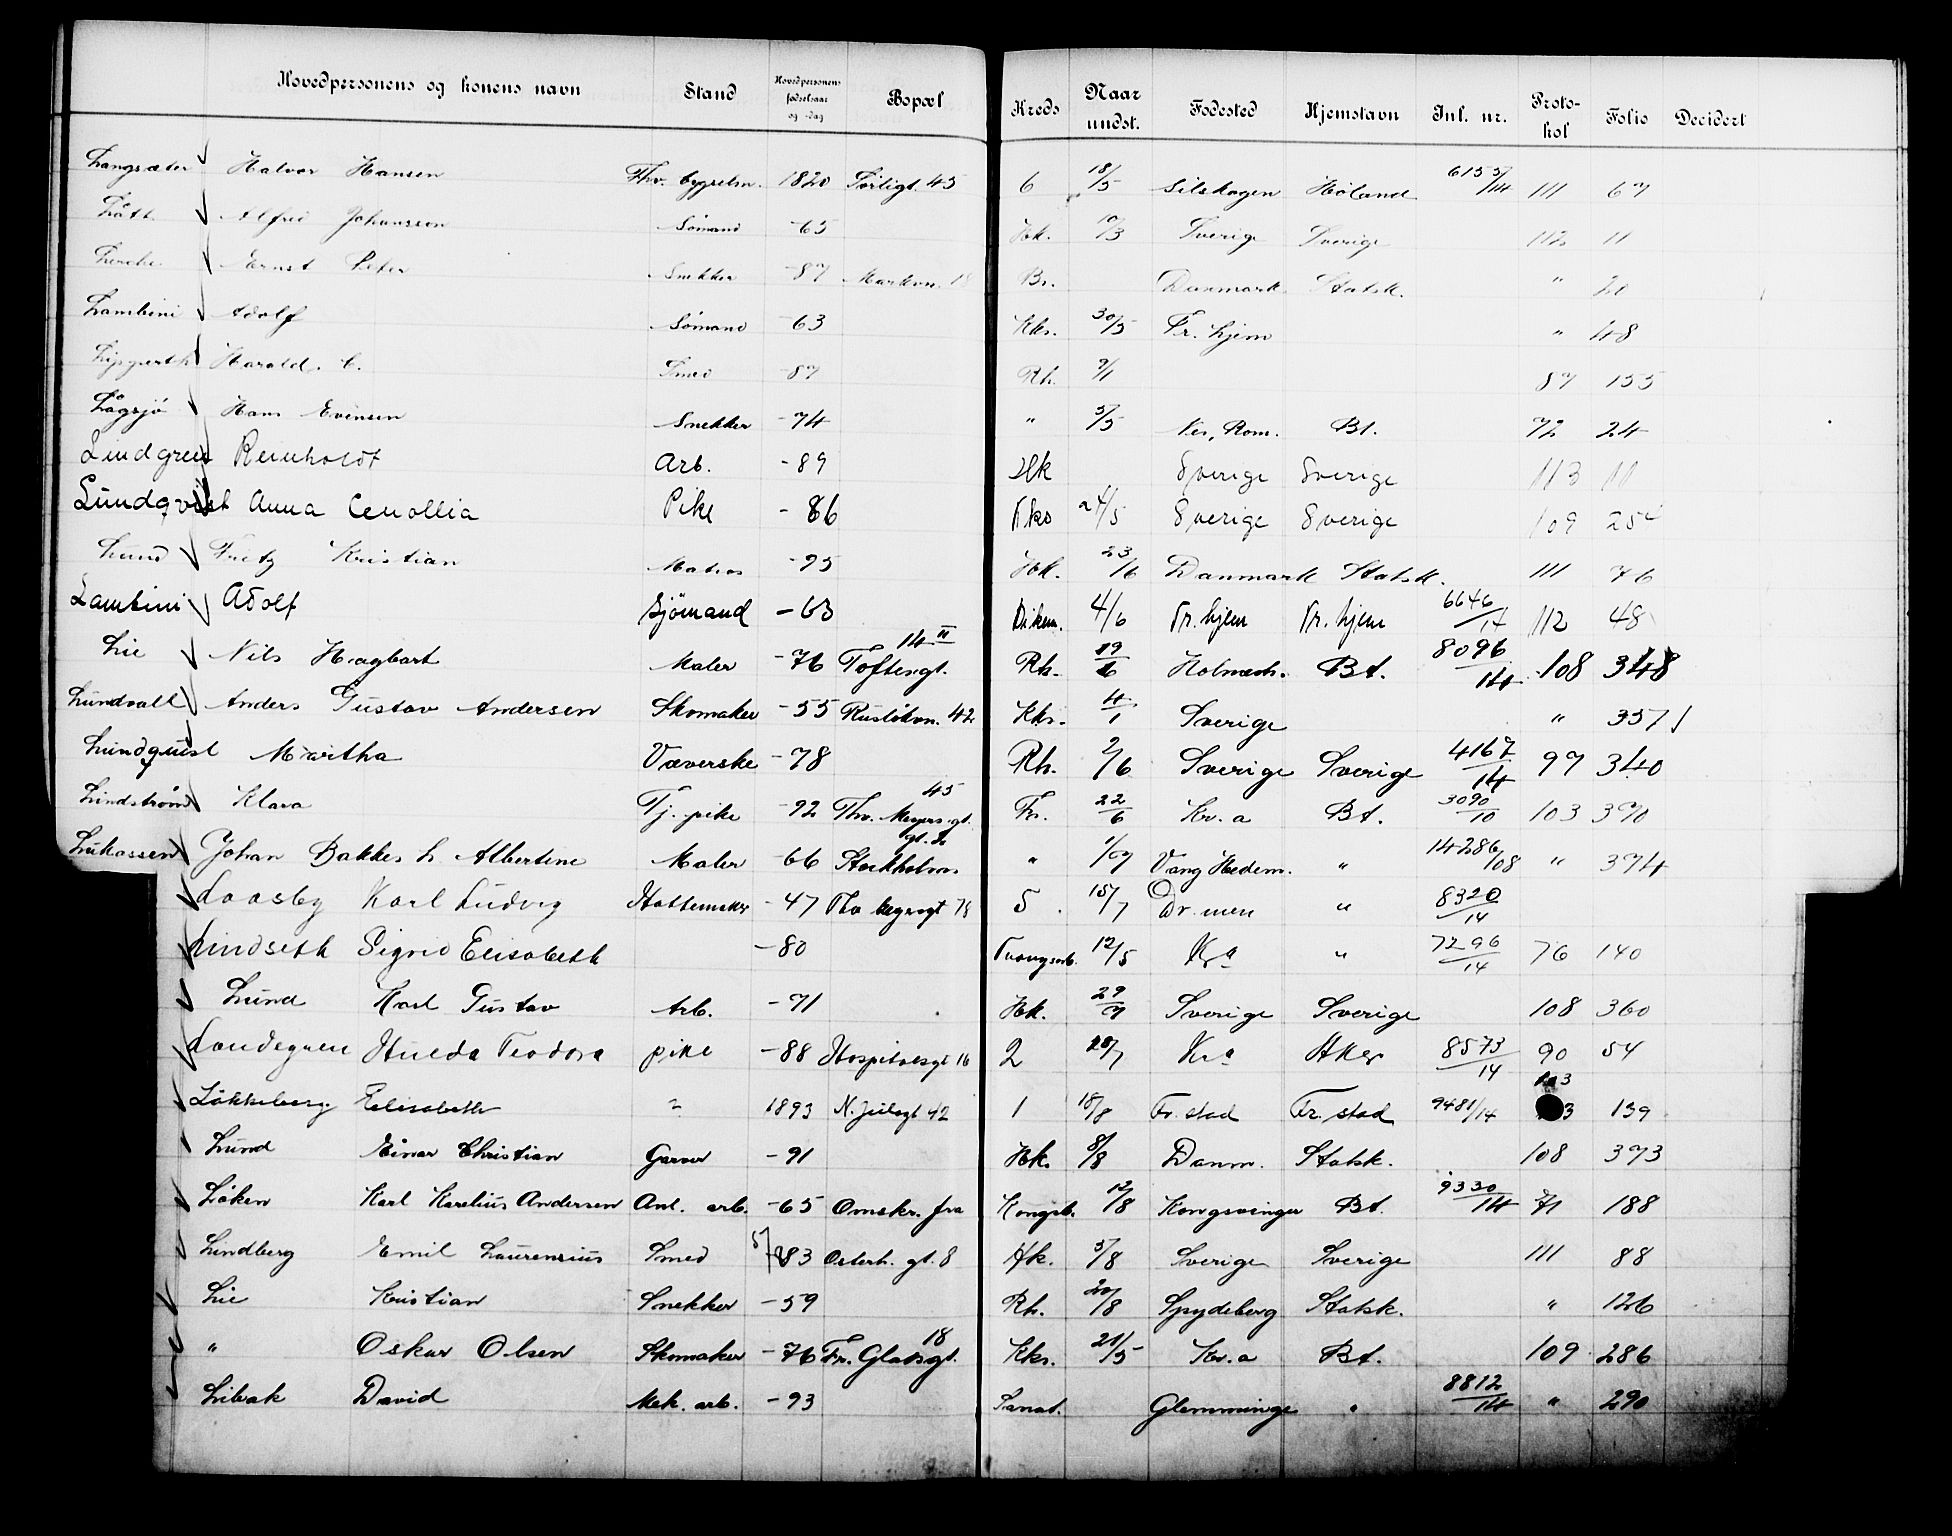 Hovedpersonens og konens navn Stand Hovedpersonens fødselsaar og -dag Bopæl Kreds Naar undst. Fødested Hjemstavn Inl. nr. Protokol Folio Decidert
Langsæter Halvor Hansen Thv. bygselm. 1820 Sørligt. 45 6 18/5 Høland 6155/14 111 67
Lått Alfred Johansson Sømand -65 Hk. 10/3 Sverige Sverige 112 11
Lerche Ernst Peter Snekker -87 Markvn. 18 Br. Danmark Statsk. " 20
Lambini Adolf Sømand -63 Kks. 30/5 Fr. hjem " 48
Lippert Harald. C. Smed -87 Rh. 9/1 87 155
Lågsjø Hans Evensen Snekker -74 " 5/5 Nes, Rom. Bt. 72 24
Lindgren Reinholdt Arb. -89 Hk Sverige Sverige 113 11
Lundqvist Anna Pike -86 Kks 24/5 Sverige Sverige 109 254
Lund Fritz Kristian Matros -95 Hk. 23/6 Danmark Statsk. 111 76
Lambini Adolf Sjömand -63 Dikem. 4/6 Fr. hjem Fr. hjem 6646/14 112 48
Lie Nils Hagbart Maler -76 Toftesgt. 14 II Rh. 19/6 Holmestr. Bt. 8096/14 108 348
Lundvall Anders Gustav Andersen Skomaker -55 Rusløkvn. 42 Kks. 4/1 Sverige " 357
Lundquist Märtha Væverske -78 Rh. 2/6 Sverige Sverige 4167/14 97 340
Lindstrøm Klara Tj. pike -92 Thv. Meyers gt. 45 Fr. 22/6 Kr.a Bt. 3090/10 103 390
Lukassen Johan Bakke h Albertine Maler -66 Stockholms gt. 2 " 1/07 Vang Hedem. " 14286/08 " 394
Laasby Karl Ludvig Hattemaker -47 Thv. Meyersgt 78 5 15/7 Dr.men " 8320/14
Lindseth Sigrid Elisabeth -80 Tvangsarb. 12/5 Kra " 7296/14 76 140
Lund Karl Gustav Arb. -71 Hk. 29/7 Sverige Sverige 108 360
Landegren Hulda Teodora pike -88 Hospitalsgt 16 2 20/7 Kra Aker 8573/14 90 54
Løkkeberg Elisabeth " 1893 N. Julsgt 42 1 18/8 Fr. stad Fr. stad 9481/14 103 139
Lund Einar Christian Garver -91 Hk. 8/8 Danm. Statsk. 108 393
Løken Karl Karelius Andersen Anl. arb. -65 Omskr. fra Kongsb. 12/8 Kongsvinger Bt. 9330/14 71 188
Lindberg Emil Laurensius Smed 5/7 83 Osterh. gt. 8 Hk. 5/8 Sverige Sverige 111 88
Lie Kristian Snekker -59 Rh. 20/8 Spydeberg Statsk. " 126
" Oskar Olsen Skomaker -76 Fr. Gladsgt. 18 Kks. 21/5 Kr.a Bt. 109 286
Libak David Mek. arb. -93 Sanat. Glemminge " 8812/14 " 290